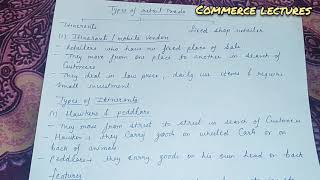 Commerce lectures
Types of retail trade
Itinerants Fixed shop retailer
(1) Itinerant / mobile vendors
- Retailers who have no fixed place of sale
- They move from one place to another in search of
Customers
- They deal in low price, daily use items & require
Small investment
Types of Itinerants
(1) Hawkers & peddlers
- They move from street to street in search of Customers
- Hawkers they carry goods on wheeled Carts or on
back of animals
- Peddlers they carry goods on his own head or back
features